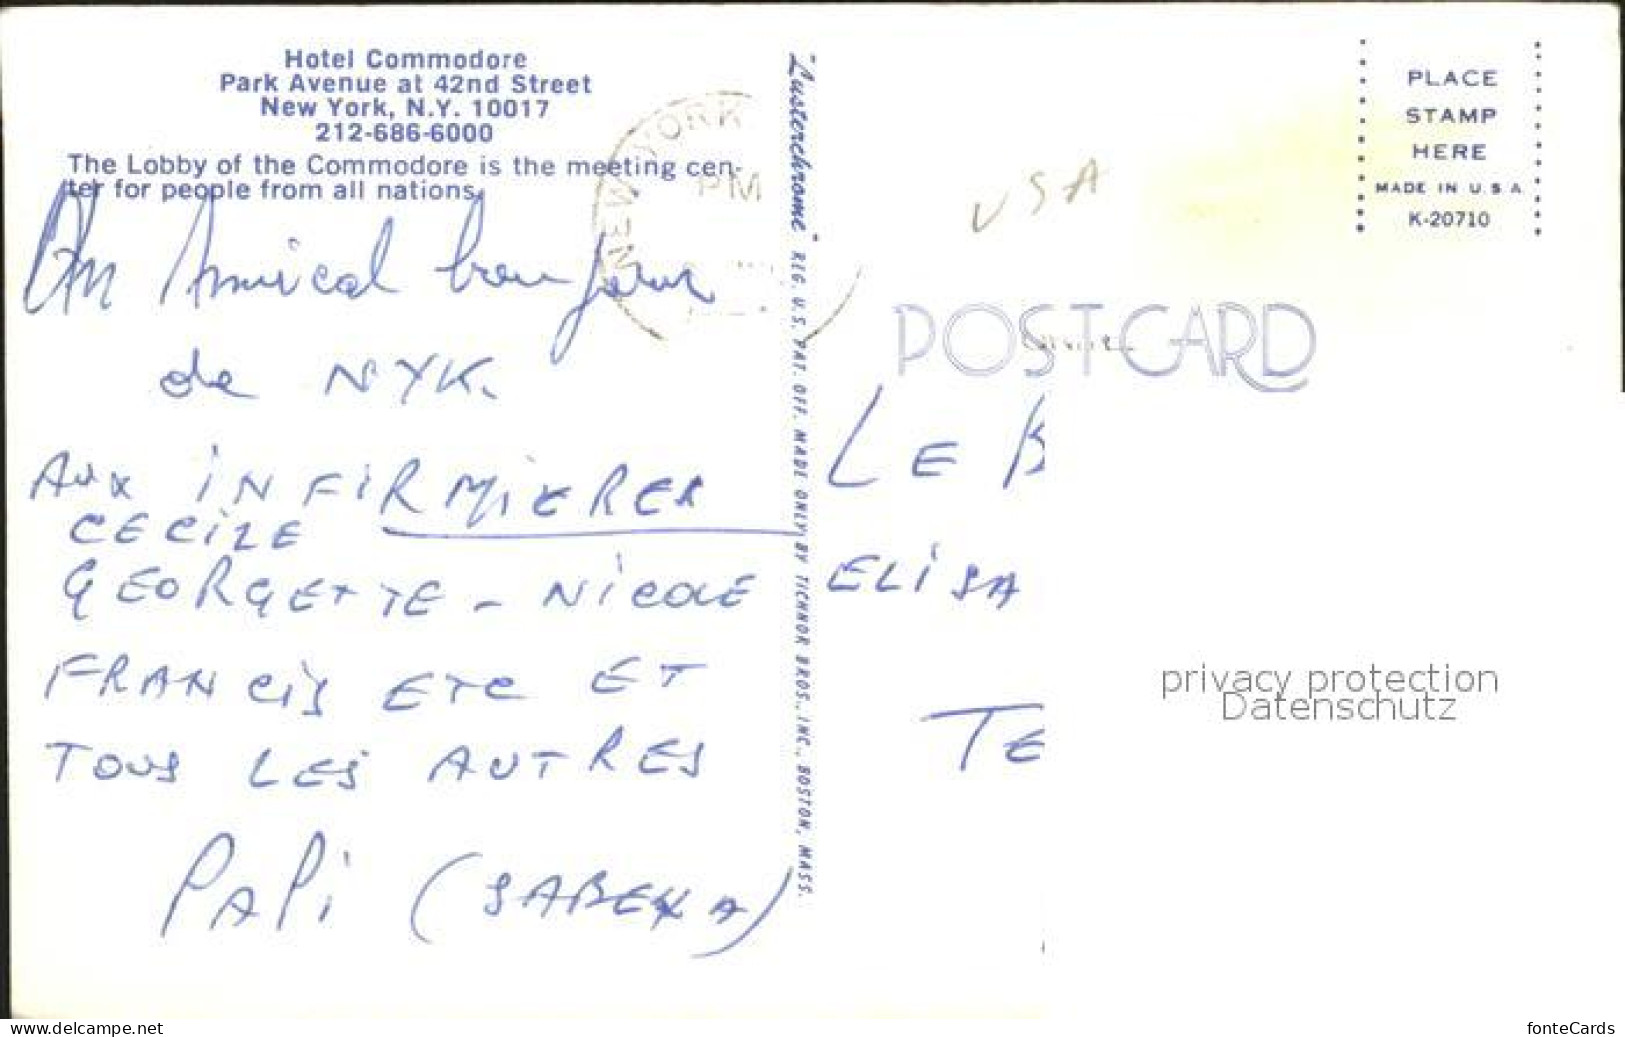 Hotel Commodore
Park Avenue at 42nd Street
New York, N.Y. 10017
212-686-6000
The Lobby of the Commodore is the meeting cen-
ter for people from all nations.
NEW YORK
PM
Un Amical bonjour
de NYK.
AUX INFIRMIERES
CECILE
GEORGETTE - NICOLE
FRANCIS ETC ET
TOUS LES AUTRES
PAPI (SABENA)
"Lusterchrome" REG. U.S. PAT. OFF. MADE ONLY BY TICHNOR BROS., INC., BOSTON, MASS.
USA
PLACE
STAMP
HERE
MADE IN U.S A
K-20710
POST CARD
LE B
ELISA
TE
privacy protection
Datenschutz
www.delcampe.net
fonteCards